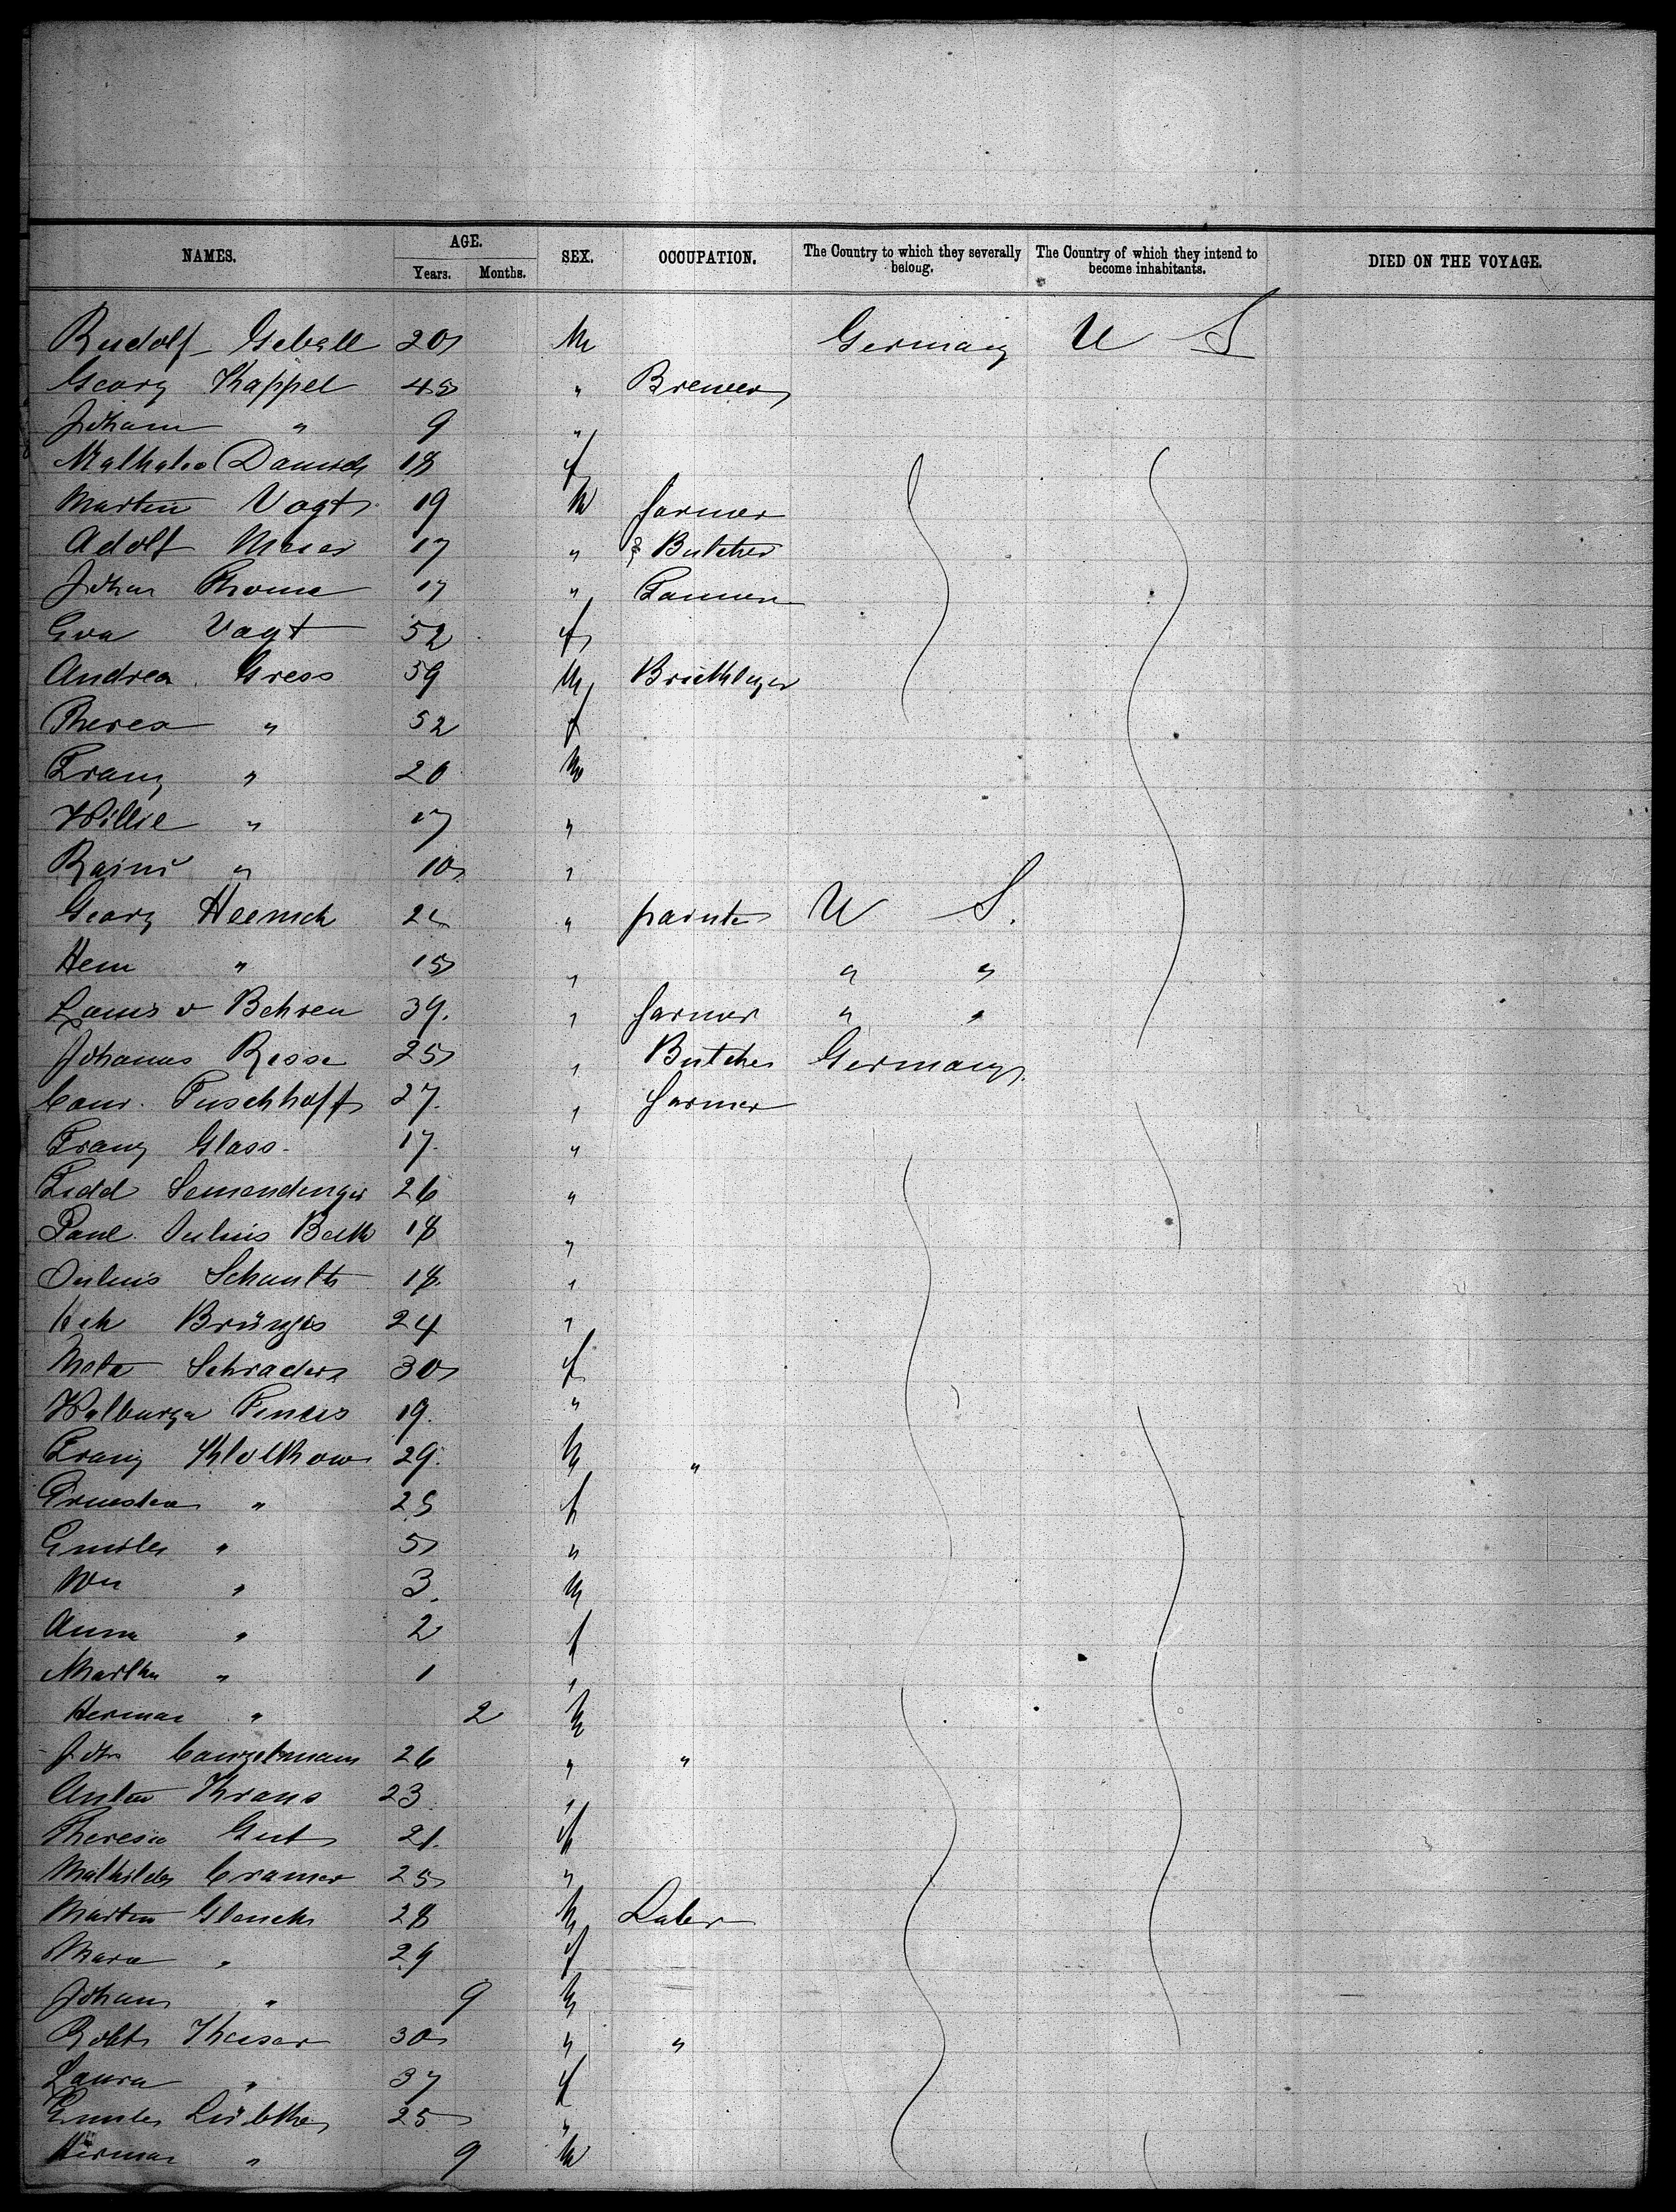 NAMES. AGE. SEX. OCCUPATION. The Country to which they severally belong. The Country of which they intend to become inhabitants. DIED ON THE VOYAGE.
Years. Months.
Rudolf Geball 20 M Germany U S
Georg Kappel 45 " Brewer
Johann " 9 "
Danisch 18 f
Martin Vogt 19 M farmer
Adolf Meier 17 " Butcher
Johan Thoma 17 " Farmer
Eva Vogt 52 f
Andrea Gress 59 M Bricklayer
Theresa " 52 f
Franz " 20 M
Willie " 17 "
" 10 "
Georg Heensch " painter U S.
Hem " 15 " " "
Louis v Behren 39. " farmer " "
Johannes Resse 25 " Butcher Germany
Puschhoff 27. " farmer
Franz Glass 17. "
Semendinger 26 "
Paul Julius Beck 18 "
Julius Schauth 18. "
Hch Brünges 24 "
Meta Schraders 30 f
Walburga 19. "
Franz Klolkow 29. M "
Ernestin " 25 f
Emilie " 5 "
Wm " 3. M
Anna " 2 f
Martha " 1 "
Herman " 2 M
Johs 26 " "
Anton Kraus 23 "
Theresia Gut 21. f
Mathilde Cramer 25 "
Martin Glench 28 M Labor
Mara " 29 f
Johann " 9 M
Robt Kaiser 30 " "
Laura " 37 f
Emilie Lübke 25 "
Herman " 9 M